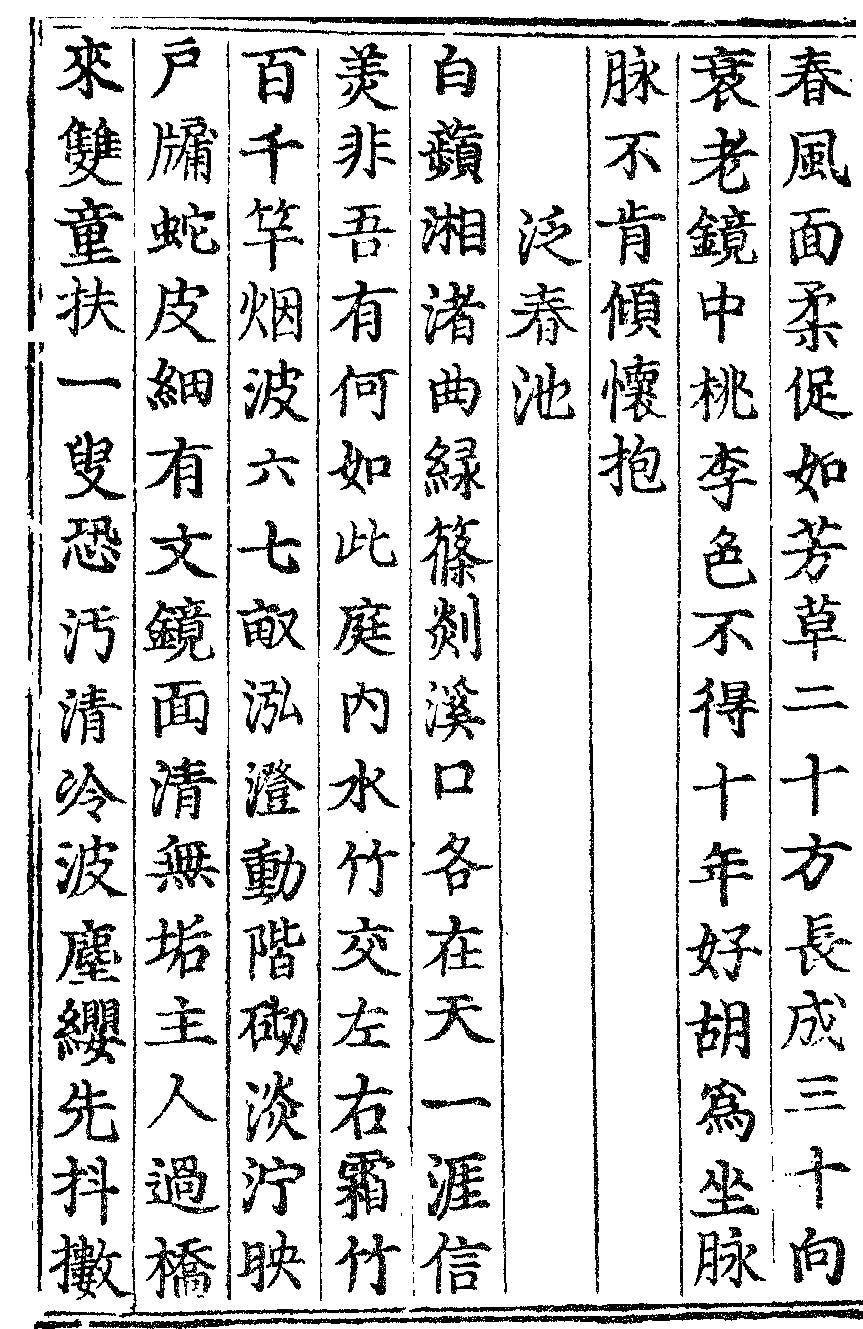 春風面柔促如芳草二十方長成三十向
衰老鏡中桃李色不得十年好胡爲坐脉
脉不肯傾懷抱
泛春池
白蘋湘渚曲緑篠剡溪口各在天一涯信
羙非吾有何如此庭内水竹交左右霜竹
百千竿烟波六七畝泓澄動階砌淡泞映
戸牖蛇皮細有文鏡面清無垢主人過橋
來雙童扶一叟恐汚清冷波塵纓先抖擻